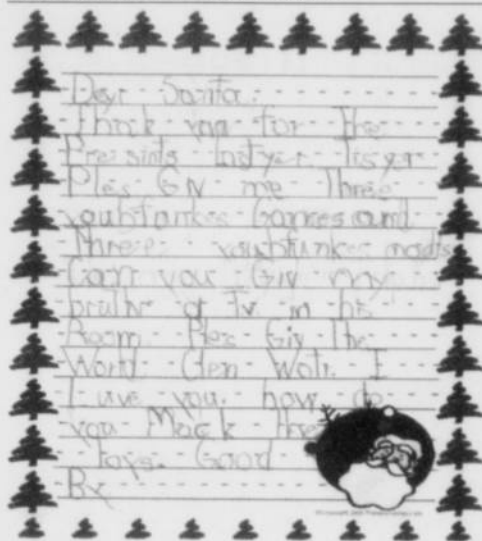 Dear Santa.
Thank you for the
Presints last yer tisyer
Ples Giv me Three
Games and
Three
Can you Giv my
bruthr a Tv in his
Room. Ples Giv The
World Clen Watr. I
Luve you. how do
you Mack the
toys. Good
By